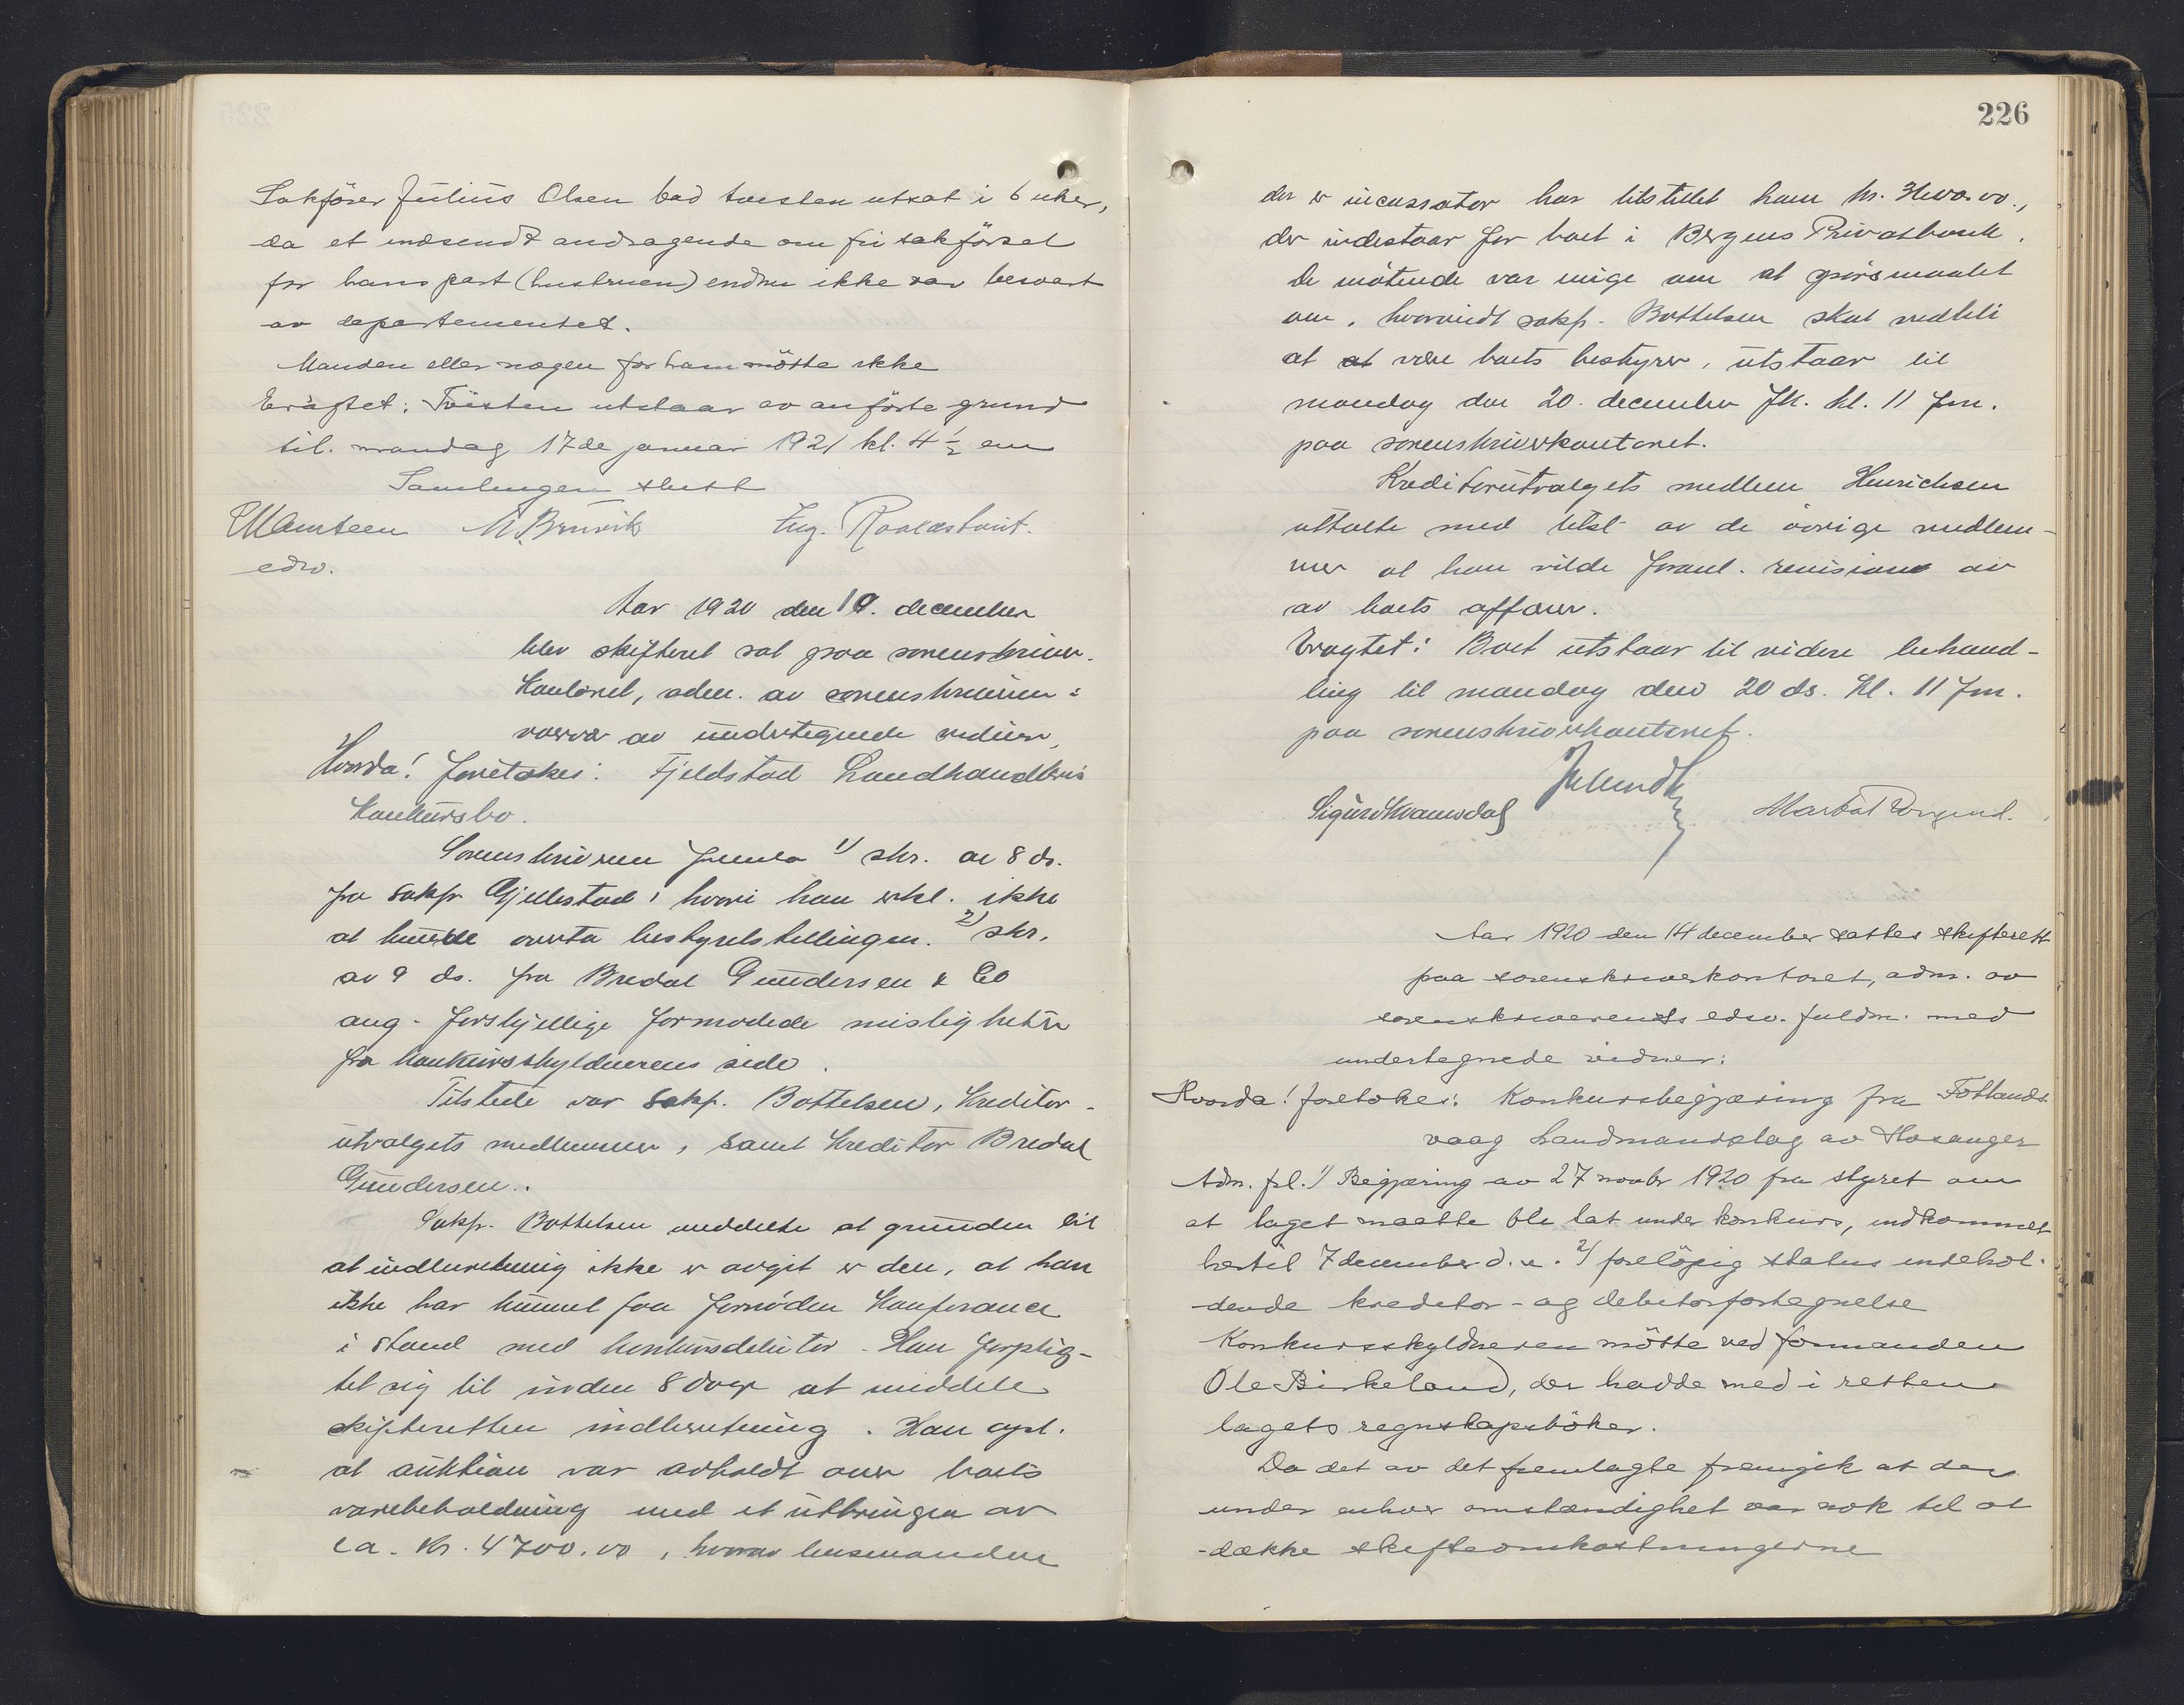 Sakförer Julius Olsen bad tvisten utsat i 6 uker,
da et indsendt andragende om fri sakförsel
for hans part (hustruen) endnu ikke var besvart
av departementet.
Manden eller nogen for ham mötte ikke
Eragtet: Tvisten utstaar av anförte grund
til mandag 17de januar 1921 kl. 4½ em
Samlingen slutt
M. Bruvik
edsv.
Aar 1920 den 10. december
blev skifteret sat paa sorenskriver-
kontoret, adm. av sorenskriveren :
av undertegnede vidner,
Hvorda! foretokes: Fjeldstad Landhandleris
Konkursbo.
Sorenskriveren freml. 1/ skr. av 8 ds.
fra sakfr. Gjellestad i hvori han erkl. ikke
at kunde overta bestyrelstillingen. 2) skr.
av 9 ds. fra Bredal Gundersen & Co
ang. forskjellige formodede misligheter
fra konkursskyldnerens side.
Tilstede var sakf. Bottelsen, Kreditor-
utvalgets medlemmer, samt Kreditor Bredal
Gundersen.
Sakfr. Bottelsen meddelte at grunden til
at indberetning ikke er avgit er den, at han
ikke har kunnet faa fornöden Konferance
i stand med konkursdebitor. Han forplig-
tet sig til inden 8 dage at meddele
skifteretten indberetning. Han opl.
at auktion var avholdt over boets
varebeholdning med et utbringen av
ca. Kr. 4700.00, hvorav lensmanden
226
der er incassator har tilstillet ham kr.
der indestaar for boet i Bergens Privatbank.
De mötende var enige om at spörsmaalet
om, hvorvidt sakf. Bottelsen skal vedbli
at at være boets bestyrer, utstaar til
mandag den 20. december fk. kl. 11 fm.
paa sorenskriverkontoret.
Kreditorutvalgets medlem Hinrichsen
uttalte med tilsl. av de övrige medlem-
mer at han vilde foranl. revision av
av boets affærer.
Eragtet: Boet utstaar til videre behand-
ling til mandag den 20 ds. Kl. 11 fm.
paa sorenskriverkontoret.
Sigurd Kvamsdal
Aar 1920 den 14 december sattes skifterett
paa sorenskriverkontoret, adm. av
sorenskriverens edsv. fuldm. med
undertegnede vidner:
Hvorda! foretokes: Konkursbegjæring fra Fotlands-
vaag Landmandslag av Hosanger
Adm. frl. 1/ Begjæring av 27 novbr 1920 fra styret om
at laget maatte bli tat under konkurs, indkommet
hertil 7 december d. a. 2/ forelöpig status indehol-
dende kreditor- og debitorfortegnelse
Konkursskyldneren mötte ved formanden
Ole Birkeland, der hadde med i retten
lagets regnskapsböker.
Da det av det fremlagte fremgik at der
under enhver omstændighet var nok til at
dække skifteomkostningerne